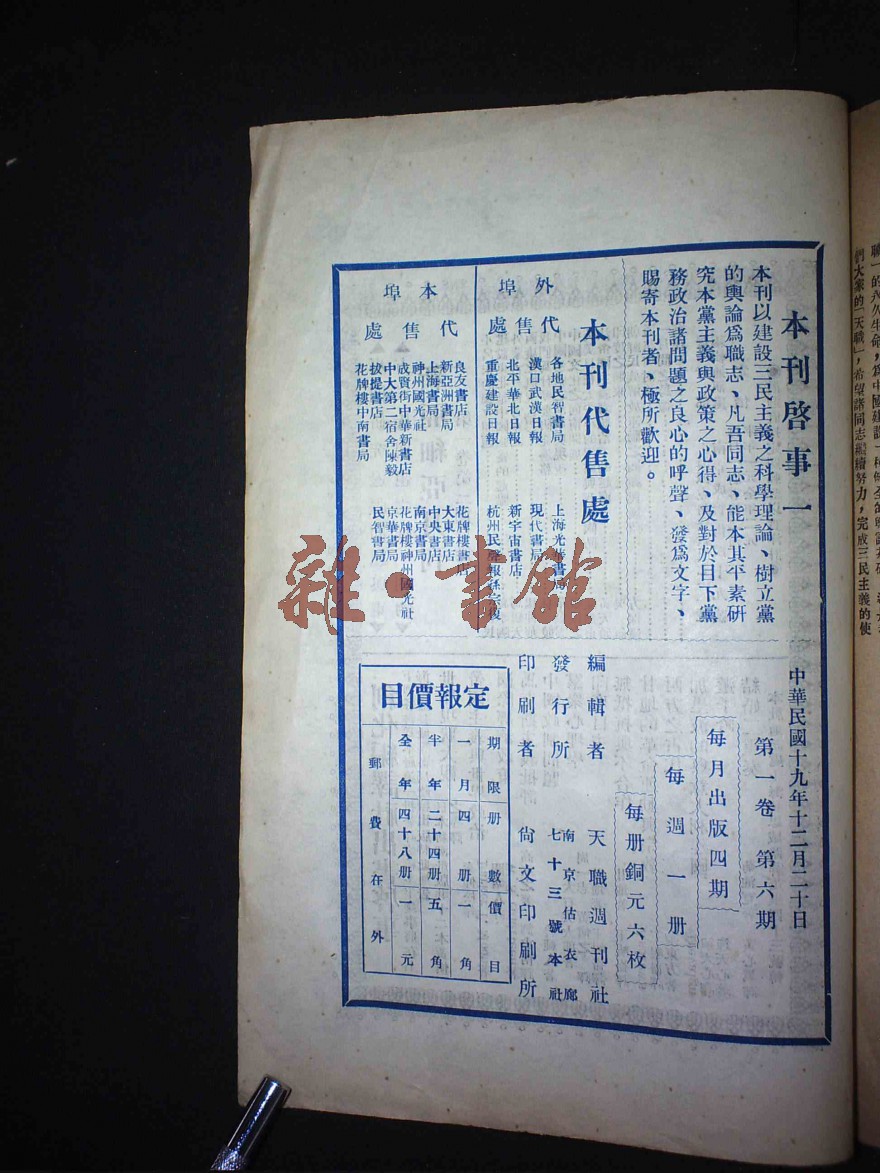 本刊啓事一
本刊以建設三民主義之科學理論、樹立黨
的輿論爲職志、凡吾同志、能本其平素研
究本黨主義與政策之心得、及對於目下黨
務政治諸問題之良心的呼聲、發爲文字、
賜寄本刊者、極所歡迎。
本刊代售處
外埠
代售處
各地民智書局
上海光華書局
漢口武漢日報
現代書局
北平華北日報
新宇宙書店
重慶建設日報
杭州民聲報
本埠
代售處
良友書店
花牌樓書店
新亞洲書局
大東書店
上海書局
中央書店
神州國光社
南京書局
成賢街中華新書店
花牌樓神州國光社
中大第二宿舍陳毅
京華書局
拔提書店
民智書局
花牌樓中南書局
中華民國十九年十二月二十日
第一卷 第六期
每月出版四期
每週一册
每册銅元六枚
編輯者 天職週刊社
發行所 南京估衣廊
七十三號本社
印刷者 尚文印刷所
定報價目
期限 册數 價目
一月 四册 一角
半年 二十四册 五角
全年 四十八册 一元
郵費在外
們大衆的「天職」，希望諸同志繼續努力，完成三民主義的使
雜·書館